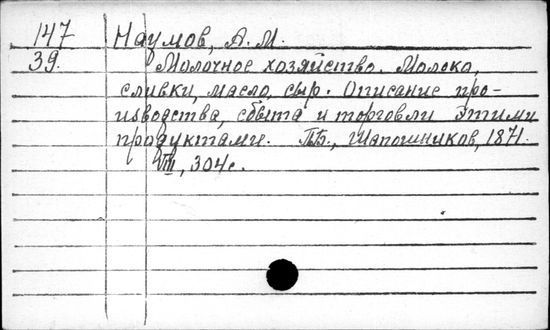 147 Наумов, А. М.
39. Молочное хозяйство. Молоко,
сливки, масло, сыр. Описание про-
изводства, сбыта и торговли этими
продуктами. ПБ., Шапошников, 1871.
VIII, 304 с.